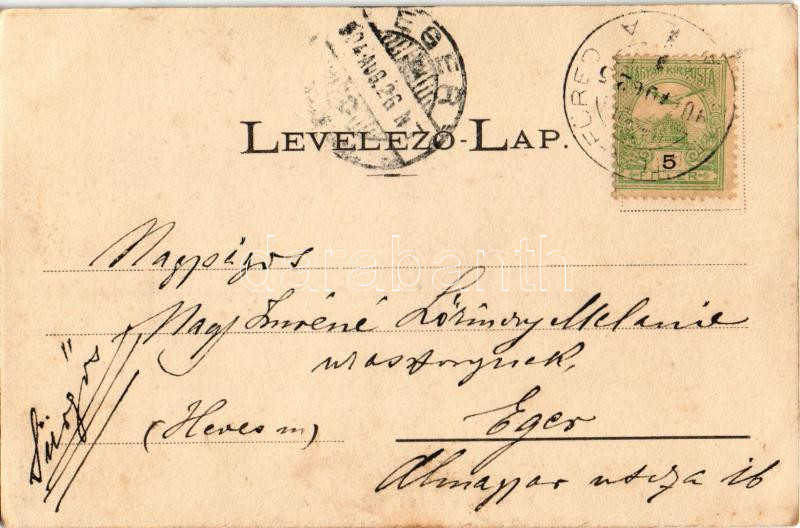 EGER
904 AUG. 26
FÜRED
MAGYAR KIR. POSTA
5
FILLÉR
LEVELEZŐ-LAP.
Nagyságos
Nagy Imréné Lőrinczy Melanie
urasszonynak,
(Heves m)
Eger
Almagyar utcza 16
Sürgős
darabanth